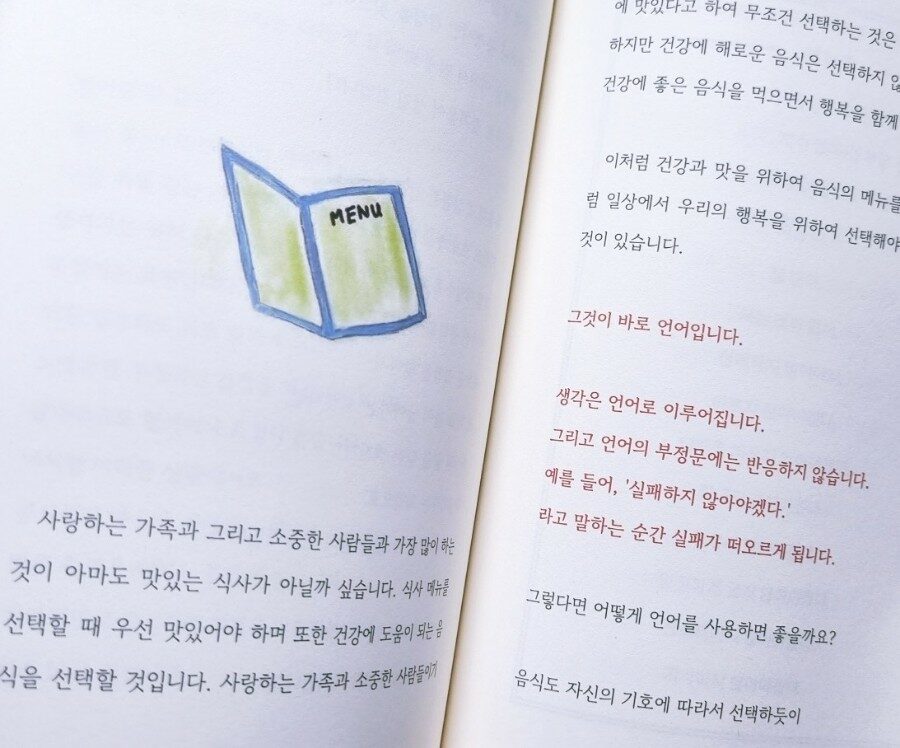 MENU
사랑하는 가족과 그리고 소중한 사람들과 가장 많이 하는
것이 아마도 맛있는 식사가 아닐까 싶습니다. 식사 메뉴를
선택할 때 우선 맛있어야 하며 또한 건강에 도움이 되는 음
식을 선택할 것입니다. 사랑하는 가족과 소중한 사람들이기
에 맛있다고 하여 무조건 선택하는 것은
하지만 건강에 해로운 음식은 선택하지 않
건강에 좋은 음식을 먹으면서 행복을 함께
이처럼 건강과 맛을 위하여 음식의 메뉴를
럼 일상에서 우리의 행복을 위하여 선택해야
것이 있습니다.
그것이 바로 언어입니다.
생각은 언어로 이루어집니다.
그리고 언어의 부정문에는 반응하지 않습니다.
예를 들어, '실패하지 않아야겠다.'
라고 말하는 순간 실패가 떠오르게 됩니다.
그렇다면 어떻게 언어를 사용하면 좋을까요?
음식도 자신의 기호에 따라서 선택하듯이